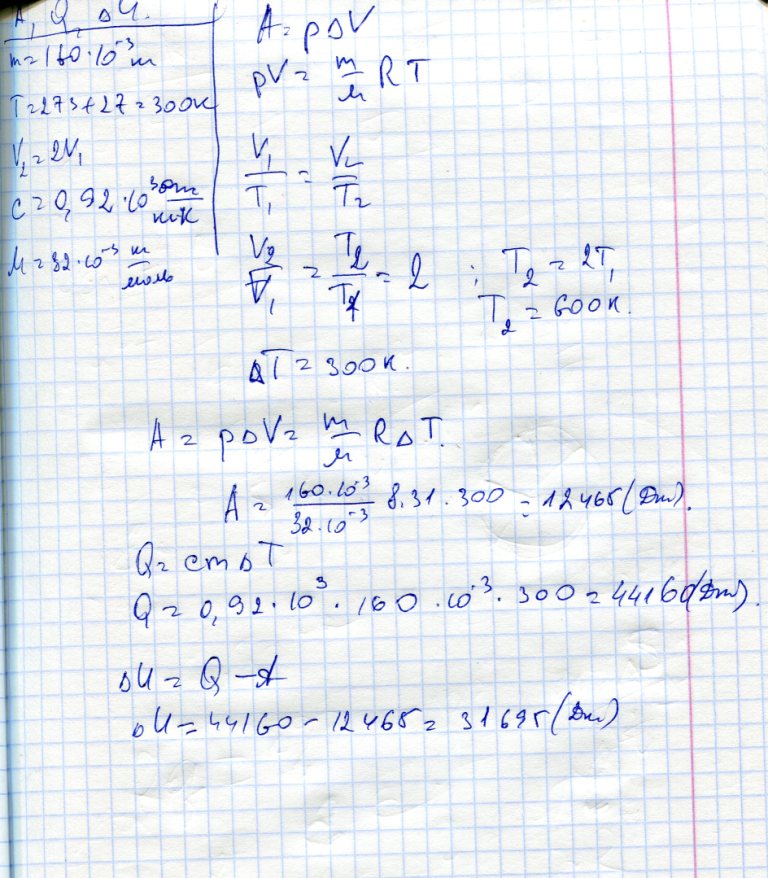 A, Q, ΔU.
m = 160·10⁻³ т
T = 273 + 27 = 300К
V₂ = 2V₁
c = 0,92·10³ Дж/кгК
M = 32·10⁻³ т/моль
A = pΔV
pV = m/м RT
V₁/T₁ = V₂/T₂
V₂/V₁ = T₂/T₁ = 2 ; T₂ = 2T₁
T₂ = 600К.
ΔT = 300К.
A = pΔV = m/м RΔT.
A = 160·10⁻³/32·10⁻³ 8,31·300 = 12465 (Дж).
Q = cmΔT
Q = 0,92·10³·160·10⁻³·300 = 44160 (Дж).
ΔU = Q − A
ΔU = 44160 − 12465 = 31695 (Дж)